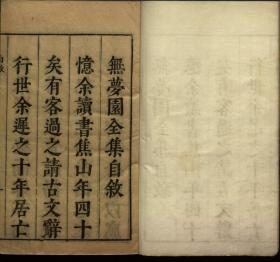 無夢園全集自敘
憶余讀書焦山年四十
矣有客過之請古文辭
行世余遲之十年居亡